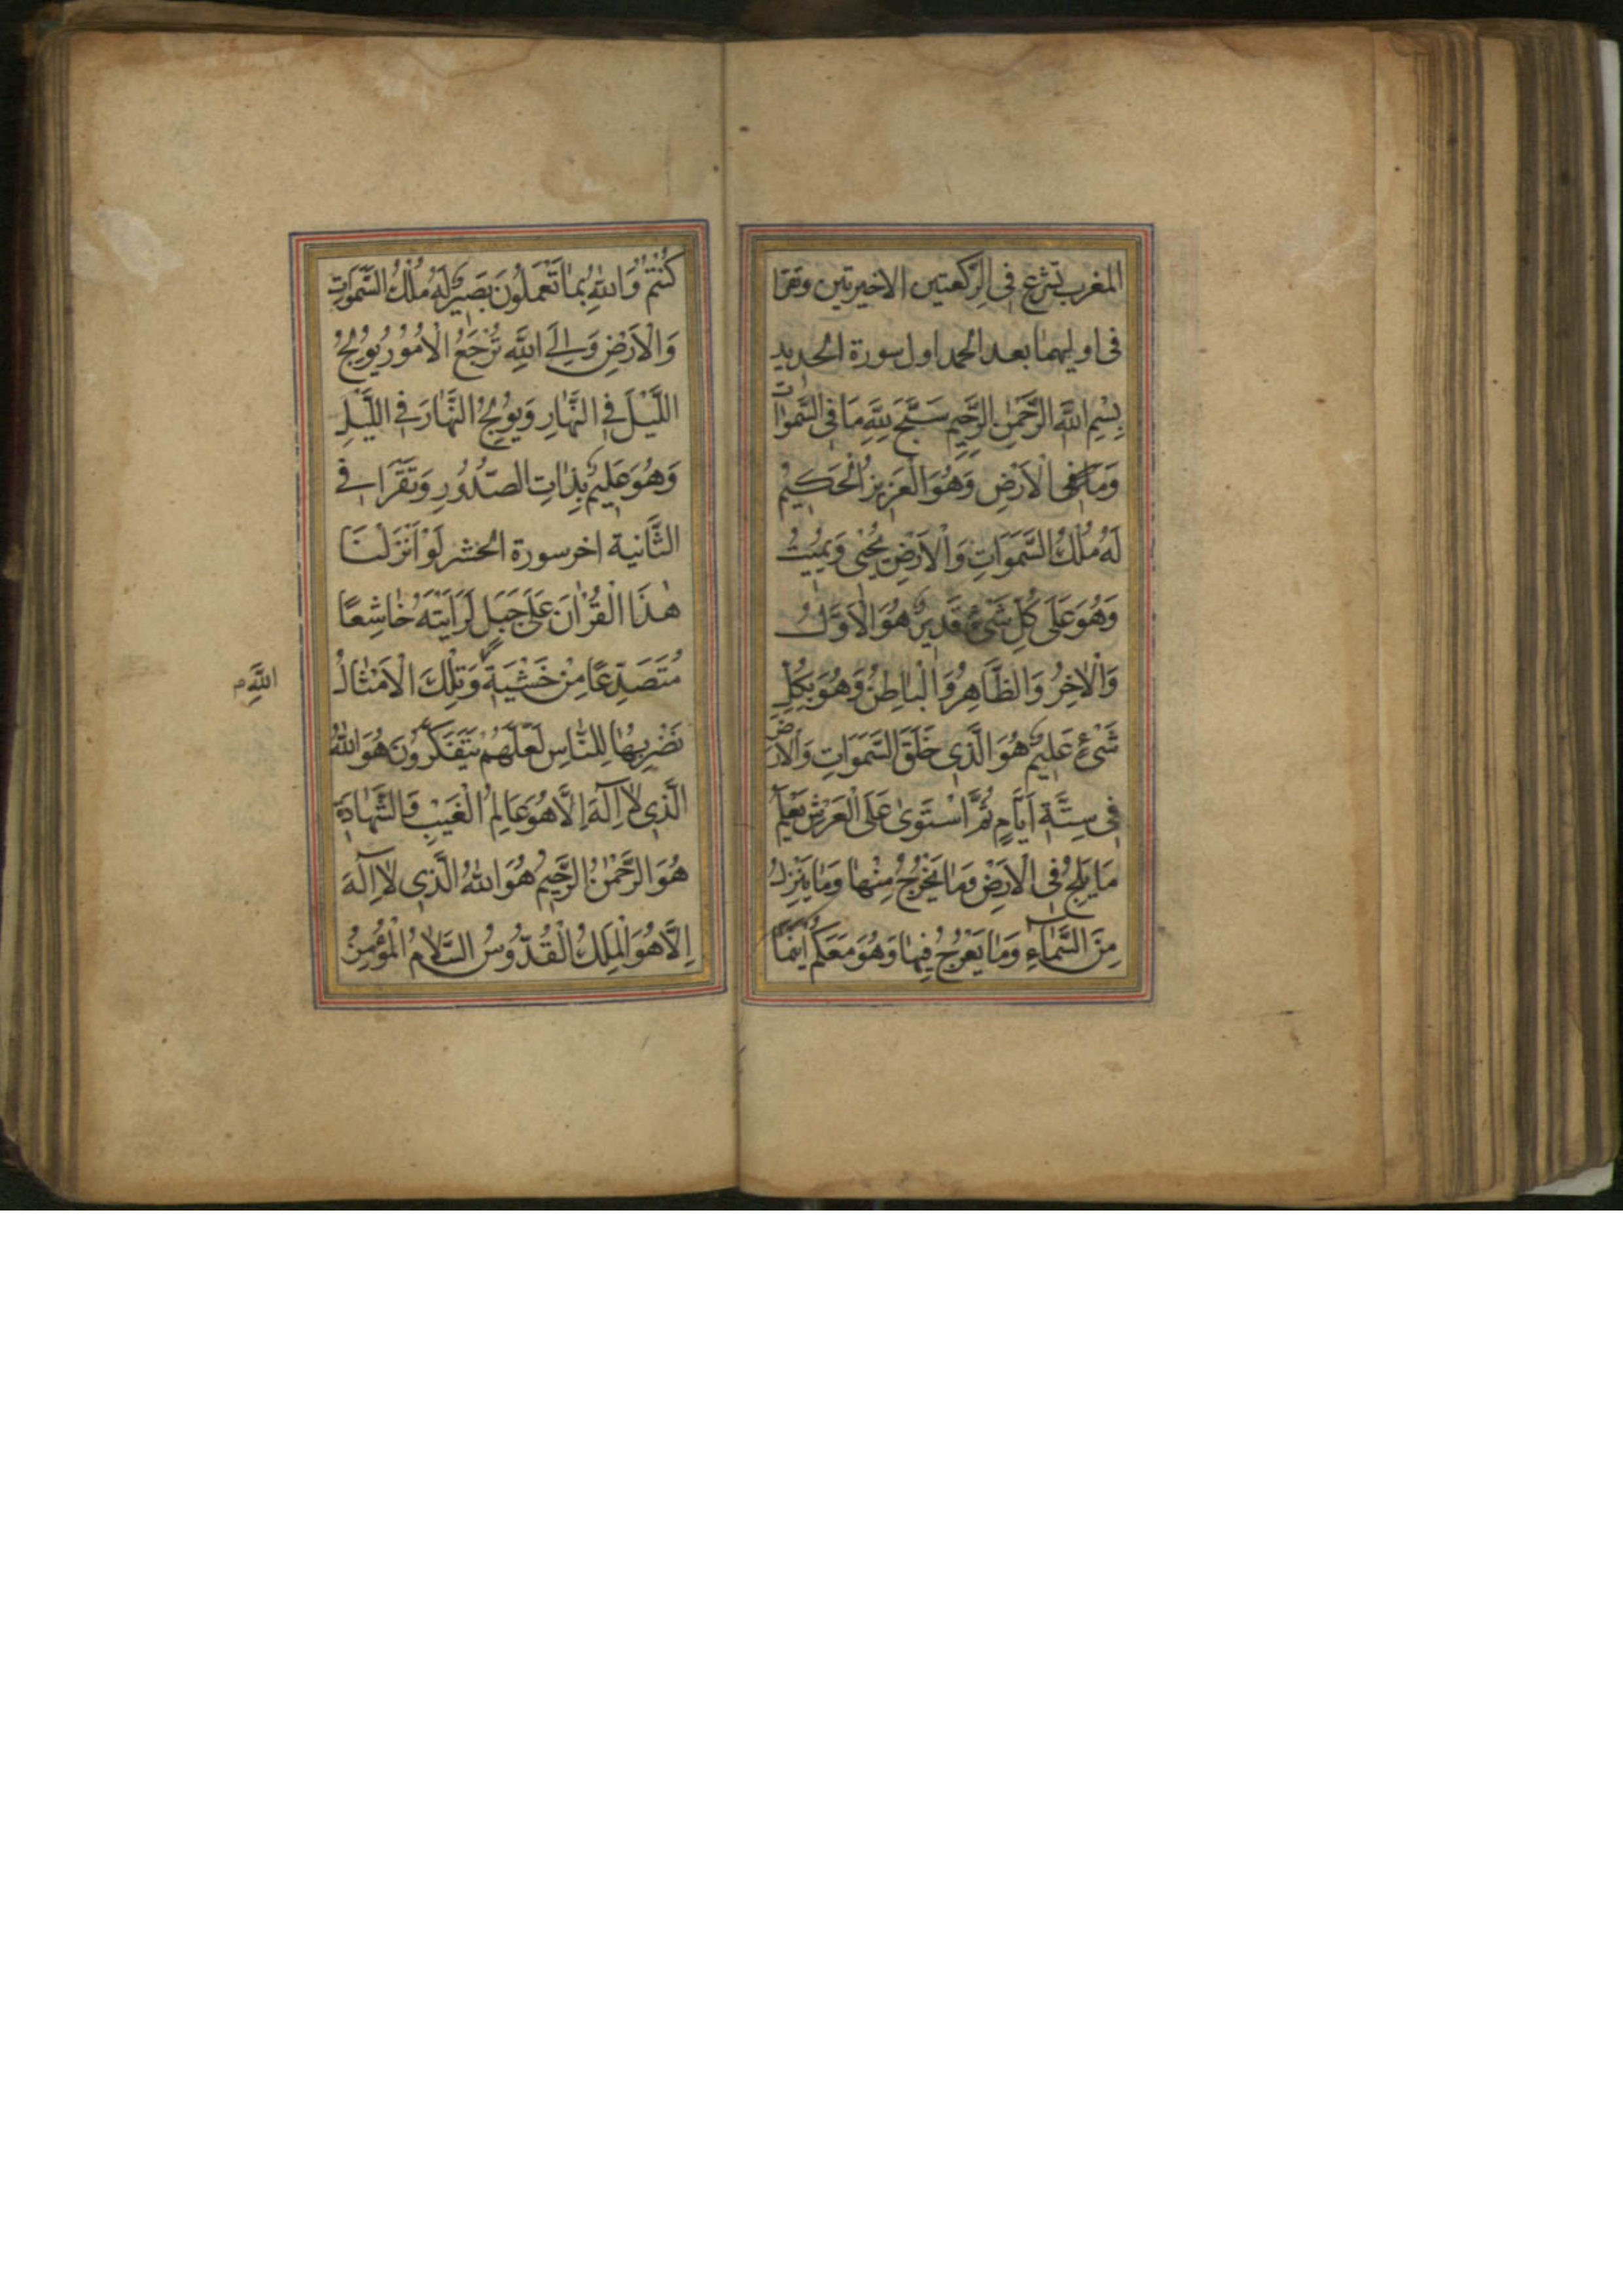 المغرب تشرع فى الركعتين الاخيرتين وتقرا
فى اوليهما بعد الحمد اول سورة الحديد
بِسْمِ اللَّهِ الرَّحْمٰنِ الرَّحِيمِ سَبَّحَ لِلَّهِ مَا فِى السَّمٰوَاتِ
وَمَا فِى الْاَرْضِ وَهُوَ الْعَزِيزُ الْحَكِيمُ
لَهُ مُلْكُ السَّمَوَاتِ وَالْاَرْضِ يُحْيِى وَيُمِيتُ
وَهُوَ عَلَى كُلِّ شَىْءٍ قَدِيرٌ هُوَ الْاَوَّلُ
وَالْاٰخِرُ وَالظَّاهِرُ وَالْبَاطِنُ وَهُوَ بِكُلِّ
شَىْءٍ عَلِيمٌ هُوَ الَّذِى خَلَقَ السَّمَوَاتِ وَالْاَرْضَ
فِى سِتَّةِ اَيَّامٍ ثُمَّ اسْتَوَىٰ عَلَى الْعَرْشِ يَعْلَمُ
مَا يَلِجُ فِى الْاَرْضِ وَمَا يَخْرُجُ مِنْهَا وَمَا يَنْزِلُ
مِنَ السَّمَآءِ وَمَا يَعْرُجُ فِيهَا وَهُوَ مَعَكُمْ اَيْنَمَا
كُنْتُمْ وَاللَّهُ بِمَا تَعْمَلُونَ بَصِيرٌ لَهُ مُلْكُ السَّمَوَاتِ
وَالْاَرْضِ وَاِلَى اللَّهِ تُرْجَعُ الْاُمُوْرُ يُوْلِجُ
اللَّيْلَ فِى النَّهَارِ وَيُوْلِجُ النَّهَارَ فِى اللَّيْلِ
وَهُوَ عَلِيمٌ بِذَاتِ الصُّدُورِ وَتَقْرَا فِى
الثَّانية اخر سورة الحشر لَوْ اَنْزَلْنَا
هٰذَا الْقُرْاٰنَ عَلَى جَبَلٍ لَرَاَيْتَهُ خَاشِعًا
مُتَصَدِّعًا مِنْ خَشْيَةِ وَتِلْكَ الْاَمْثَالُ
اللَّهِ م
نَضْرِبُهَا لِلنَّاسِ لَعَلَّهُمْ يَتَفَكَّرُونَ هُوَ اللَّهُ
الَّذِى لَا اِلٰهَ اِلَّا هُوَ عَالِمُ الْغَيْبِ وَالشَّهَادَةِ
هُوَ الرَّحْمٰنُ الرَّحِيمُ هُوَ اللَّهُ الَّذِى لَا اِلٰهَ
اِلَّا هُوَ الْمَلِكُ الْقُدُّوسُ السَّلَامُ الْمُؤْمِنُ